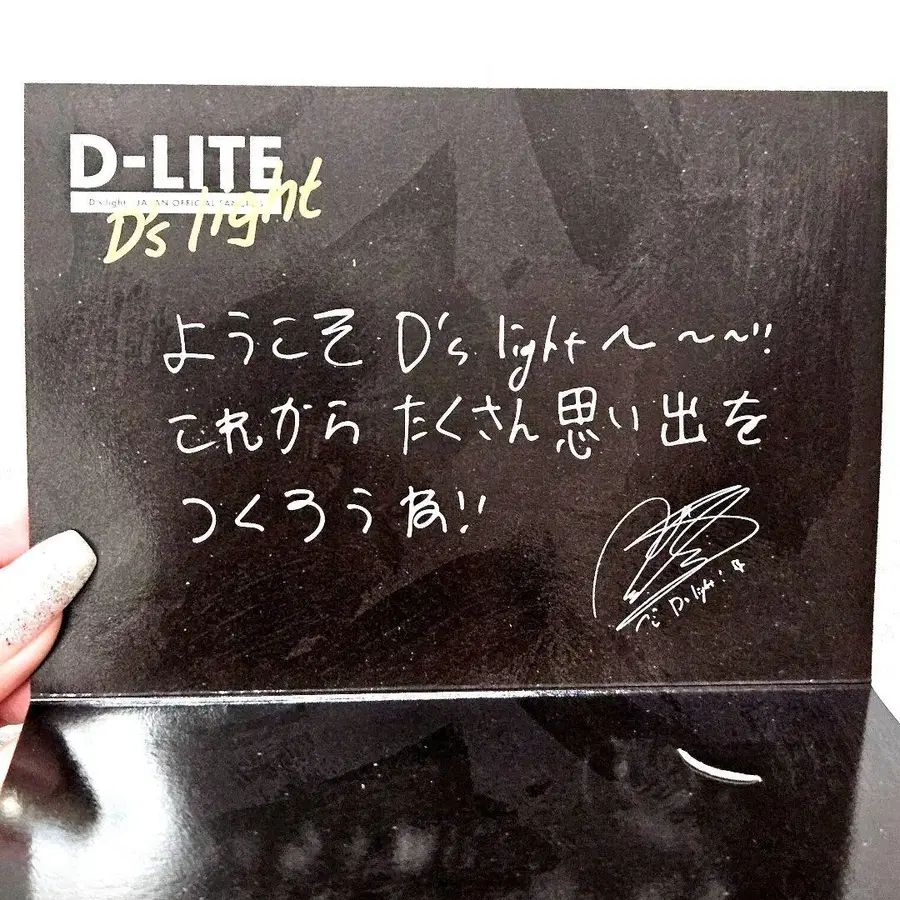 D-LITE
D'slight JAPAN OFFICIAL FANCLUB
D's light
ようこそ D's light〜〜〜!!
これから たくさん思い出を
つくろうね!!
D's light!